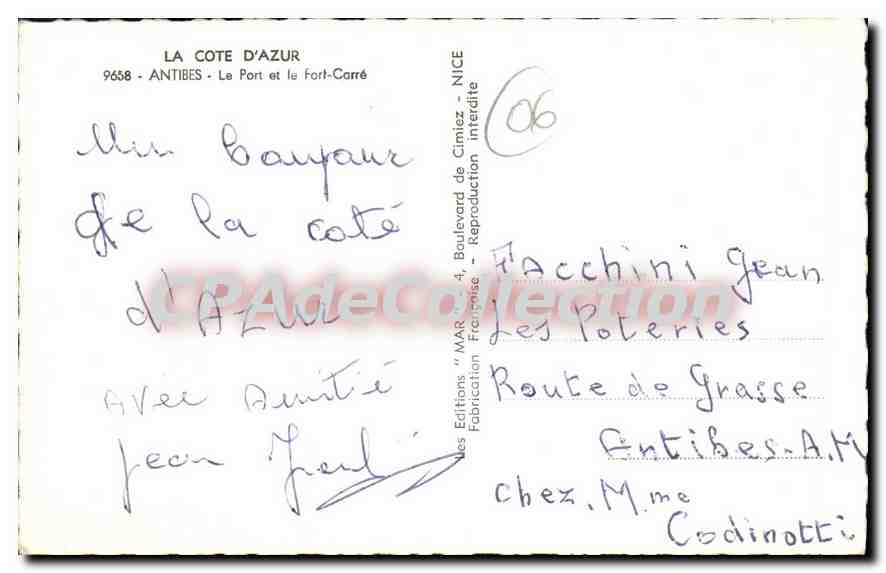 LA COTE D'AZUR
9658 - ANTIBES - Le Port et le Fort-Carré
Un bonjour
de la coté
d'AZUR
Avec Amitié
Jean
Les Editions "MAR" - 4, Boulevard de Cimiez - NICE
Fabrication Française - Reproduction interdite
06
FAcchini Jean
Les Poteries
Route de Grasse
Antibes-A.M
chez.Mme
Codinotti
CPAdeCollection.com